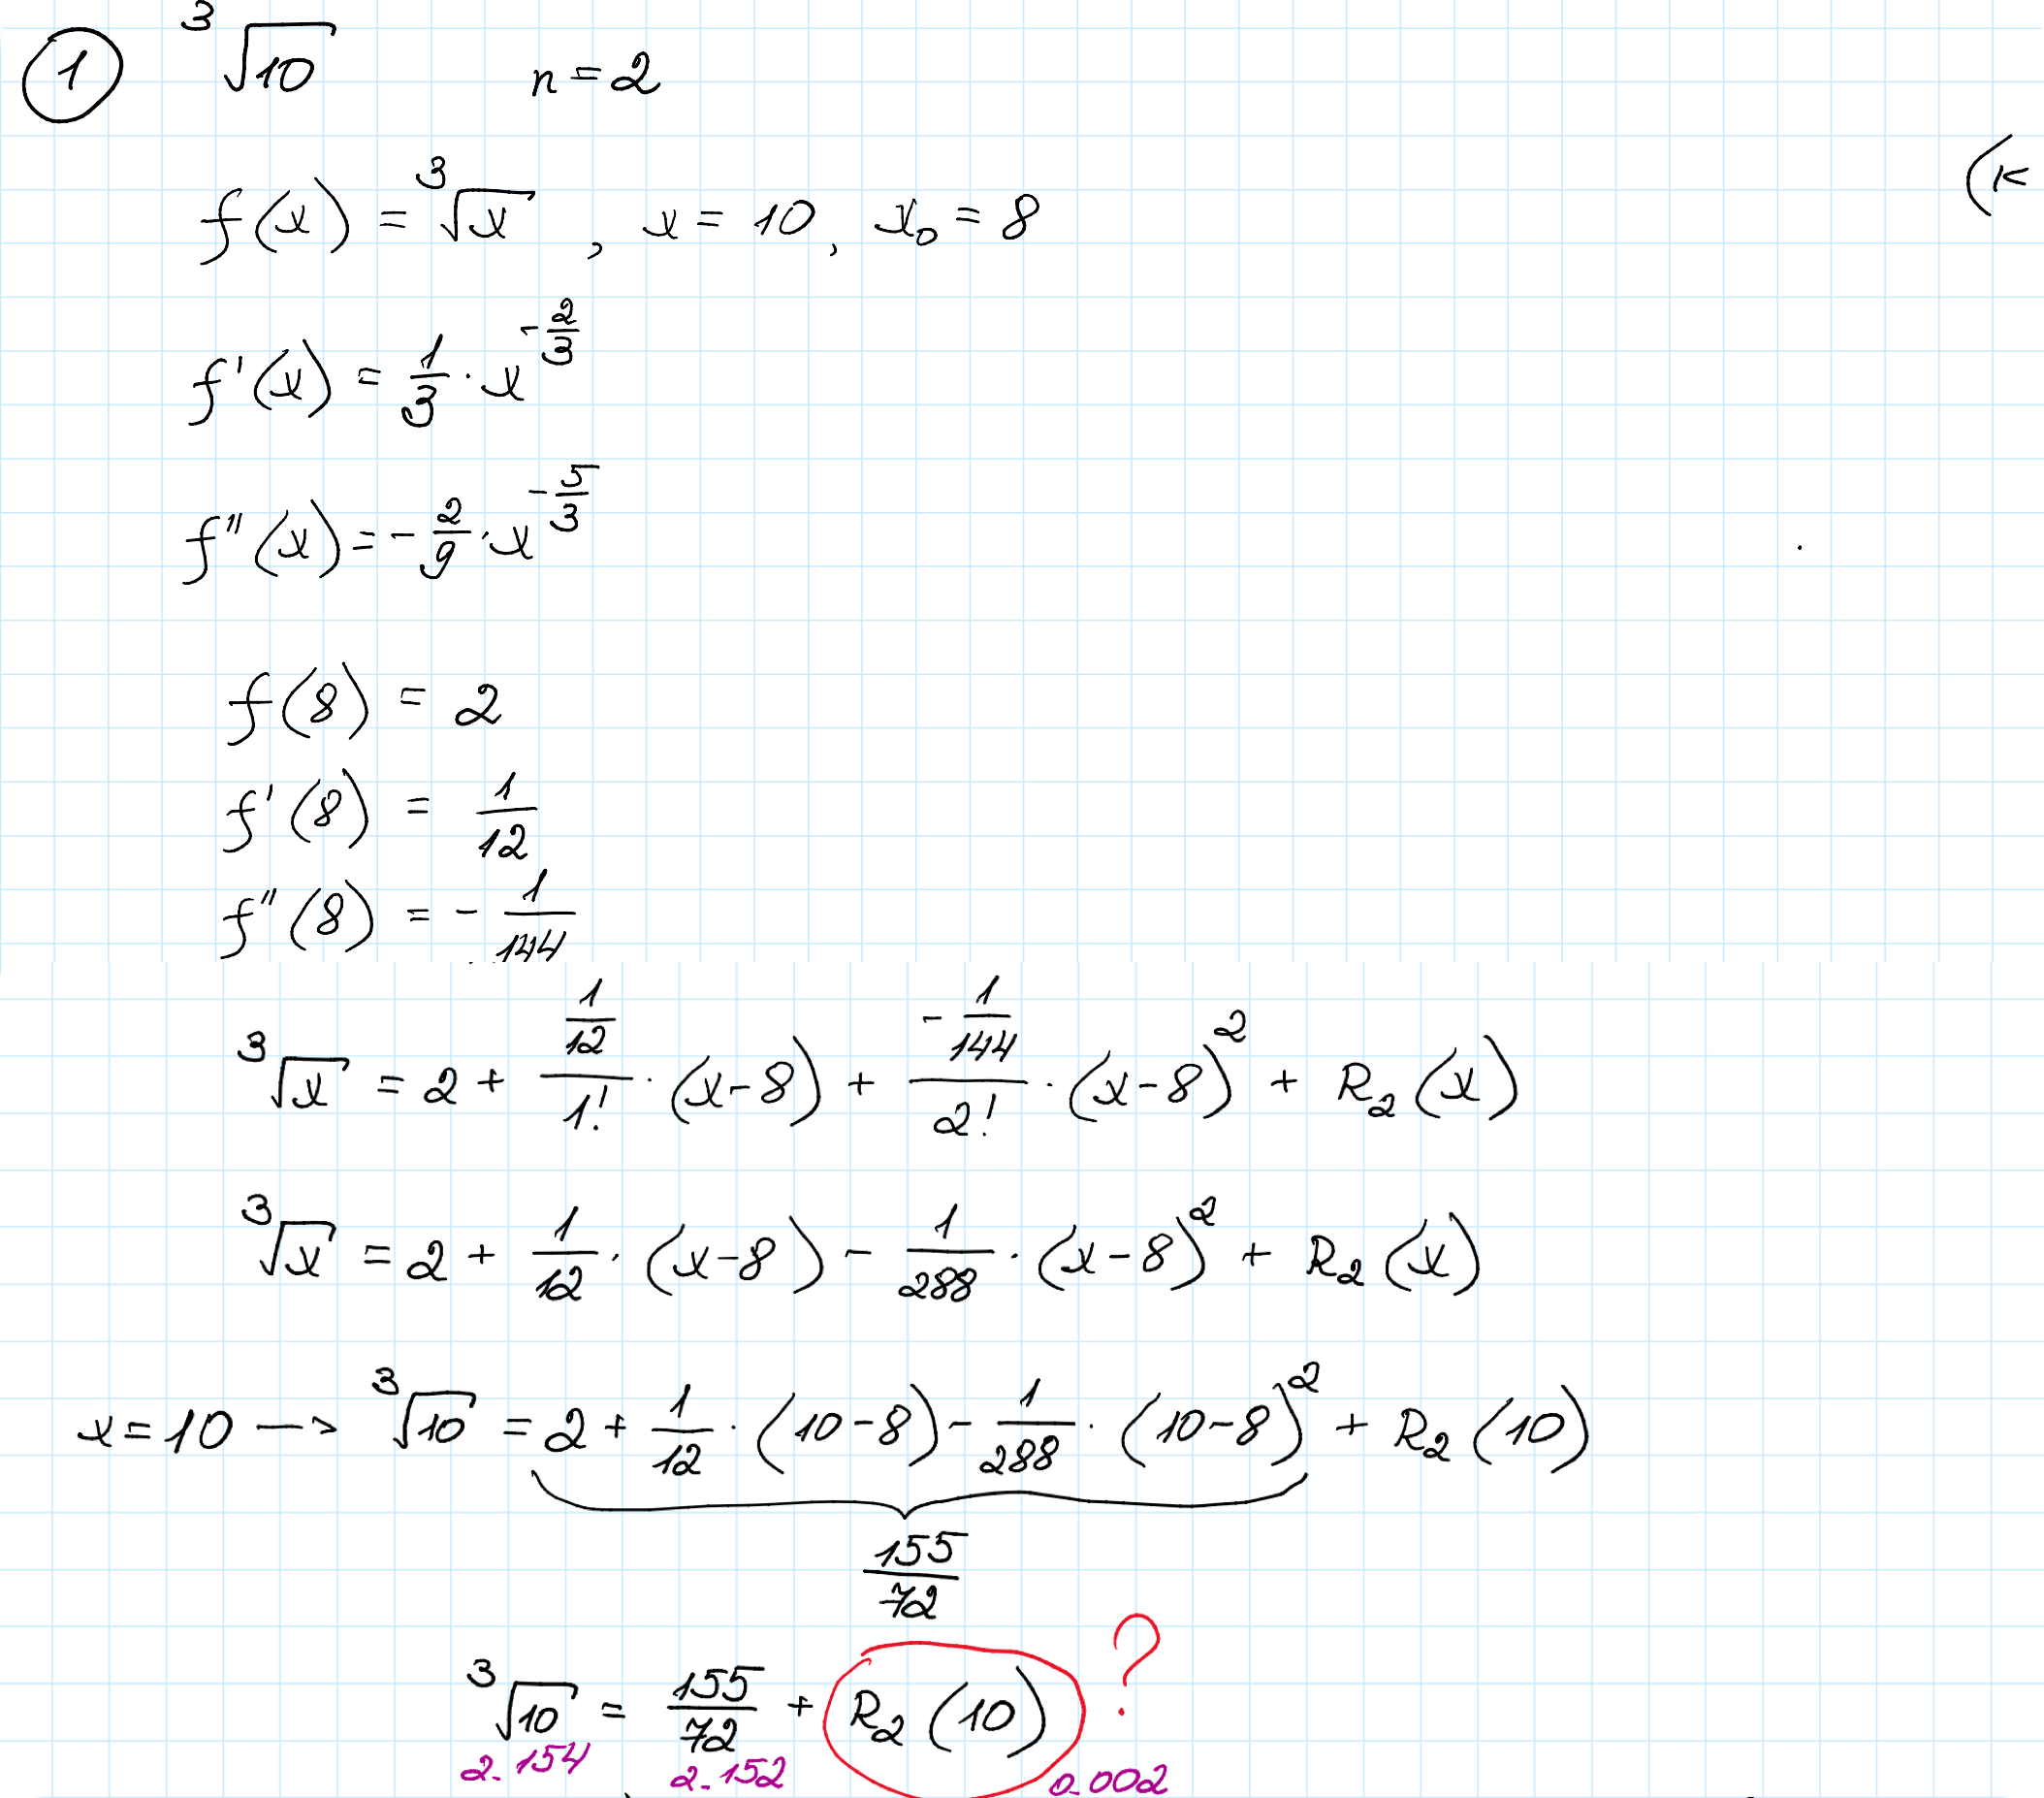 ① ³√10 n = 2
(K
f(x) = ³√x , x = 10, x₀ = 8
f'(x) = 1/3 · x^(-2/3)
f''(x) = - 2/9 · x^(-5/3)
f(8) = 2
f'(8) = 1/12
f''(8) = - 1/144
³√x = 2 + (1/12)/1! · (x-8) + (-1/144)/2! · (x-8)² + R₂(x)
³√x = 2 + 1/12 · (x-8) - 1/288 · (x-8)² + R₂(x)
x = 10 → ³√10 = 2 + 1/12 · (10-8) - 1/288 · (10-8)² + R₂(10)
155/72
³√10 = 155/72 + R₂(10) ?
2.154 2.152 0.002